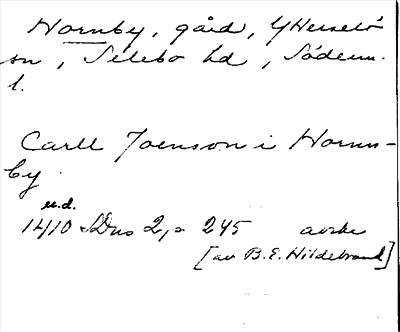 Hornby, gård, Ytterselö
sn, Selebo hd, Söderm.
l.
Carll Joenson i Hornn-
by
u.d.
1410 SDns 2, s 245 avskr
[av B.E. Hildebrand]